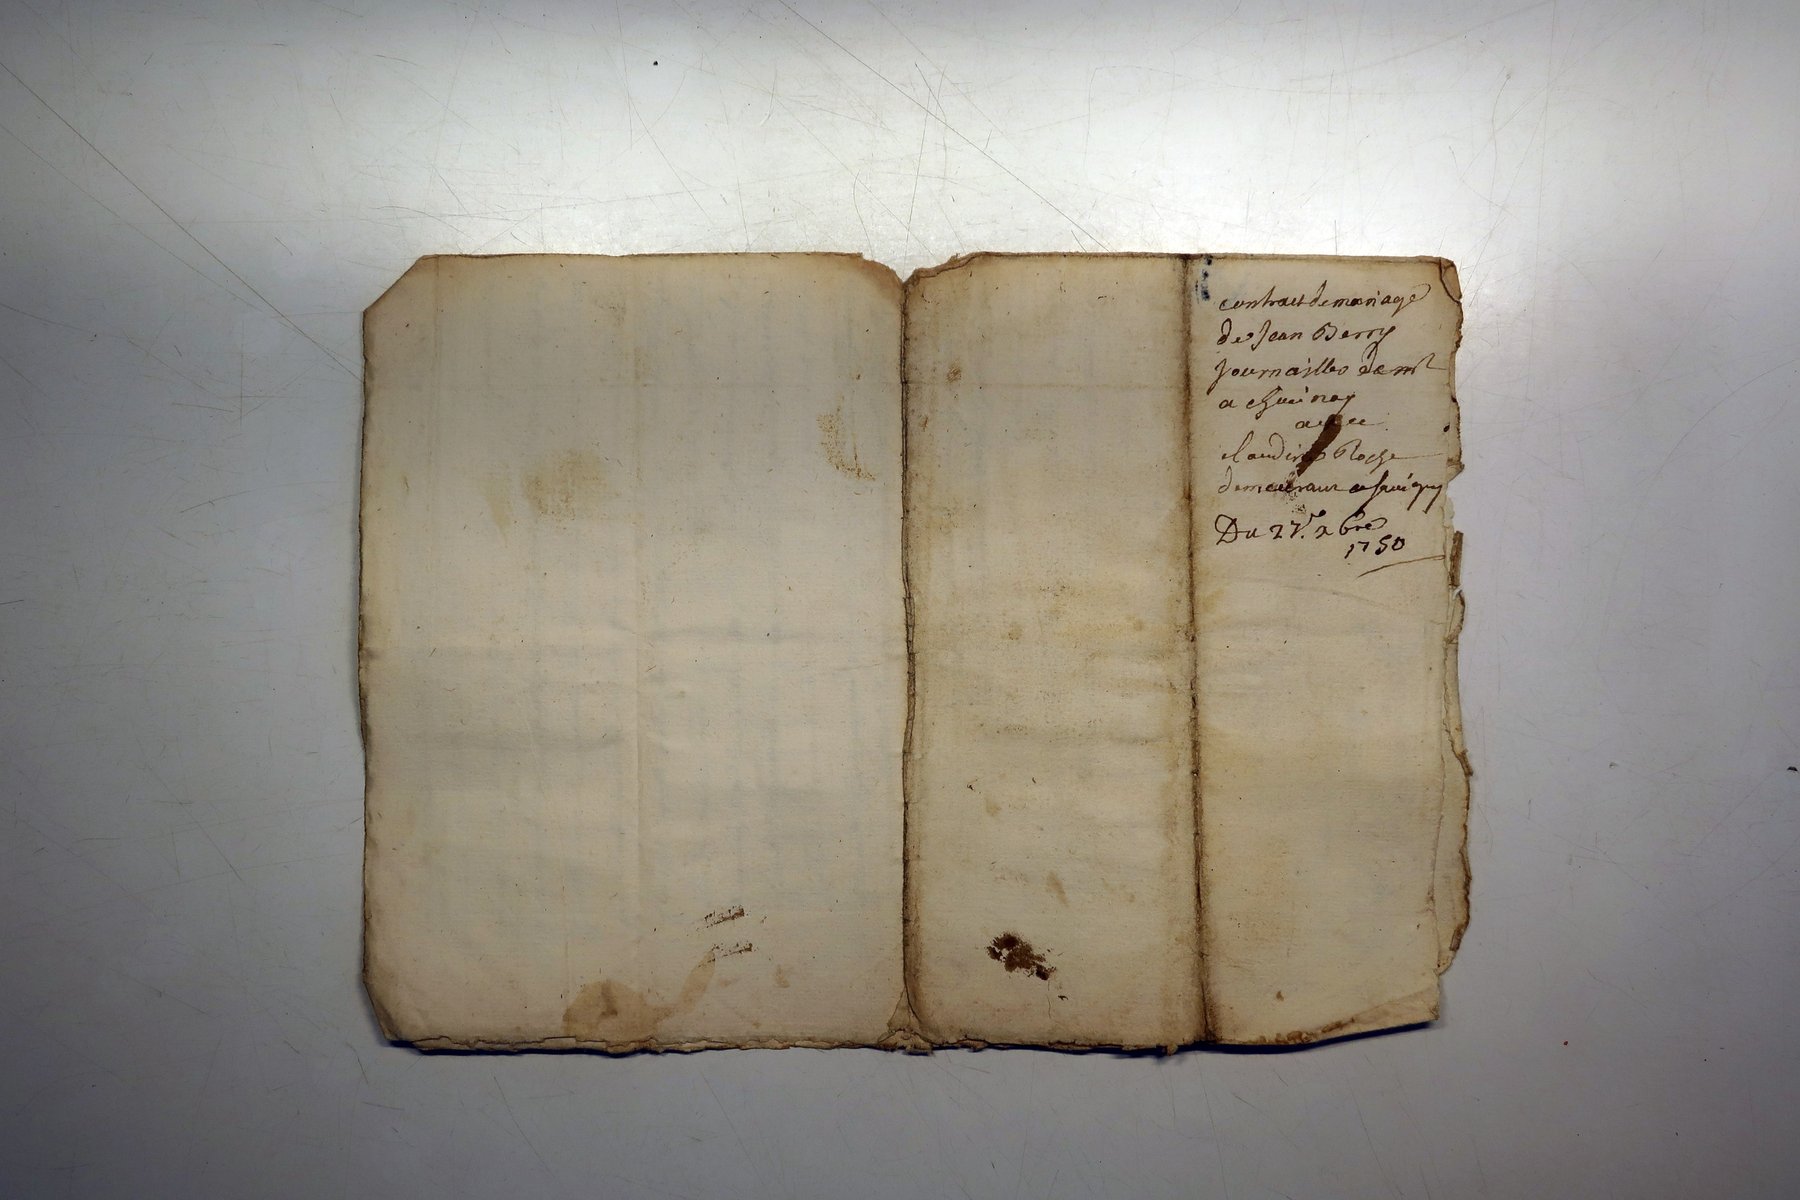 contract de mariage
de Jean Berry
Journaillier dem^t
a
avec
claudine Roche
demeurant a Savigny
Du 27^e. x bre
1750